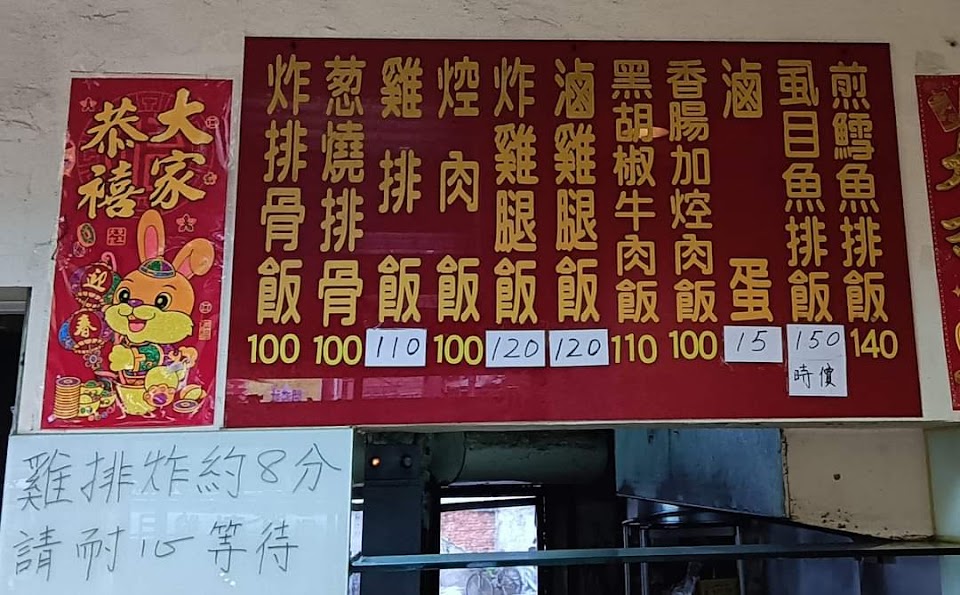 大家
恭禧
迎
春
炸排骨飯
100
葱燒排骨
100
雞排飯
110
焢肉飯
100
炸雞腿飯
120
滷雞腿飯
120
黑胡椒牛肉飯
110
香腸加焢肉飯
100
滷蛋
15
虱目魚排飯
150
時價
煎鱈魚排飯
140
雞排炸約8分
請耐心等待